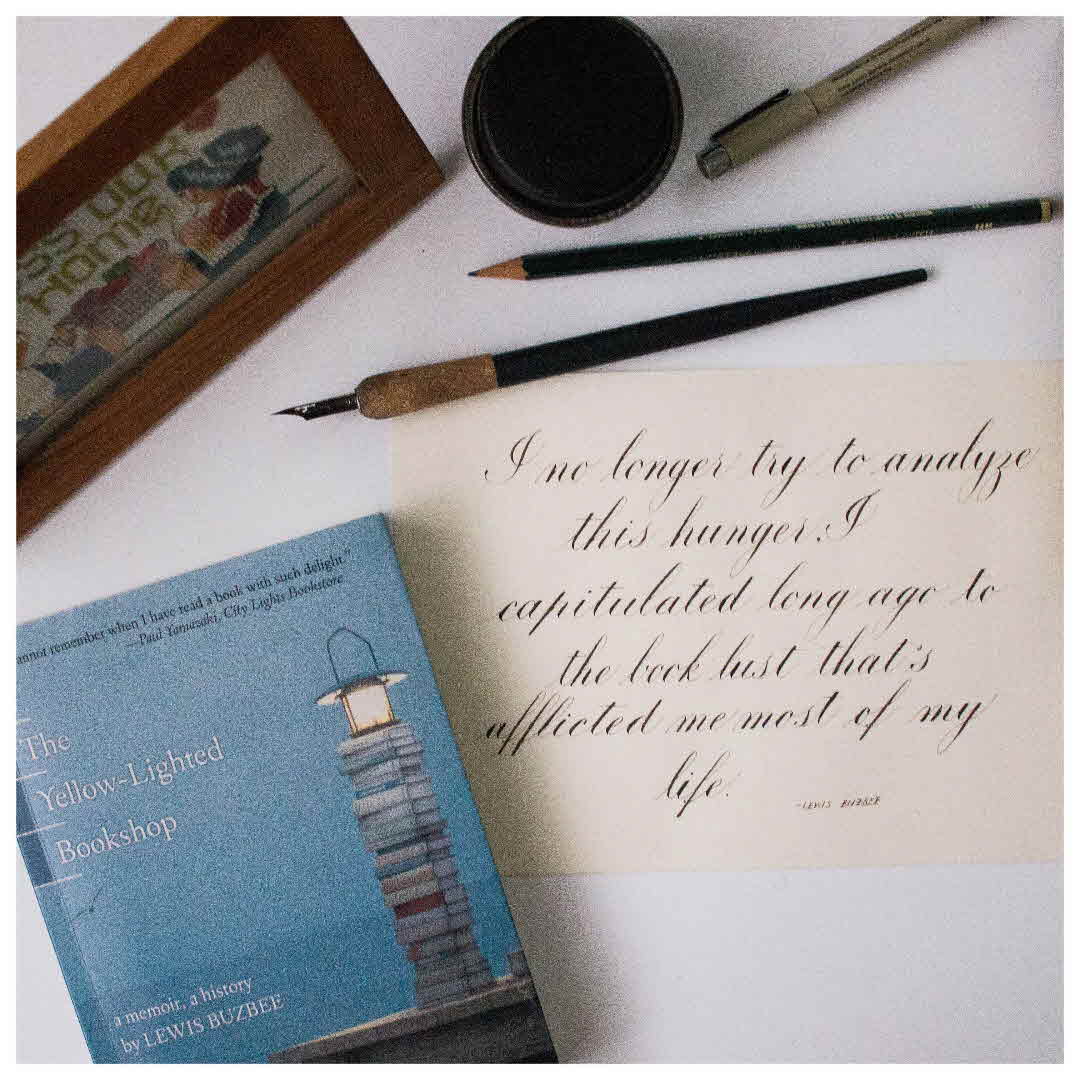 BLESS OUR
HOME
I no longer try to analyze
this hunger. I
capitulated long ago to
the book lust that's
afflicted me most of my
life.
-LEWIS BUZBEE
annot remember when I have read a book with such delight."
—Paul Yamasaki, City Lights Bookstore
The
Yellow-Lighted
Bookshop
a memoir, a history
by LEWIS BUZBEE